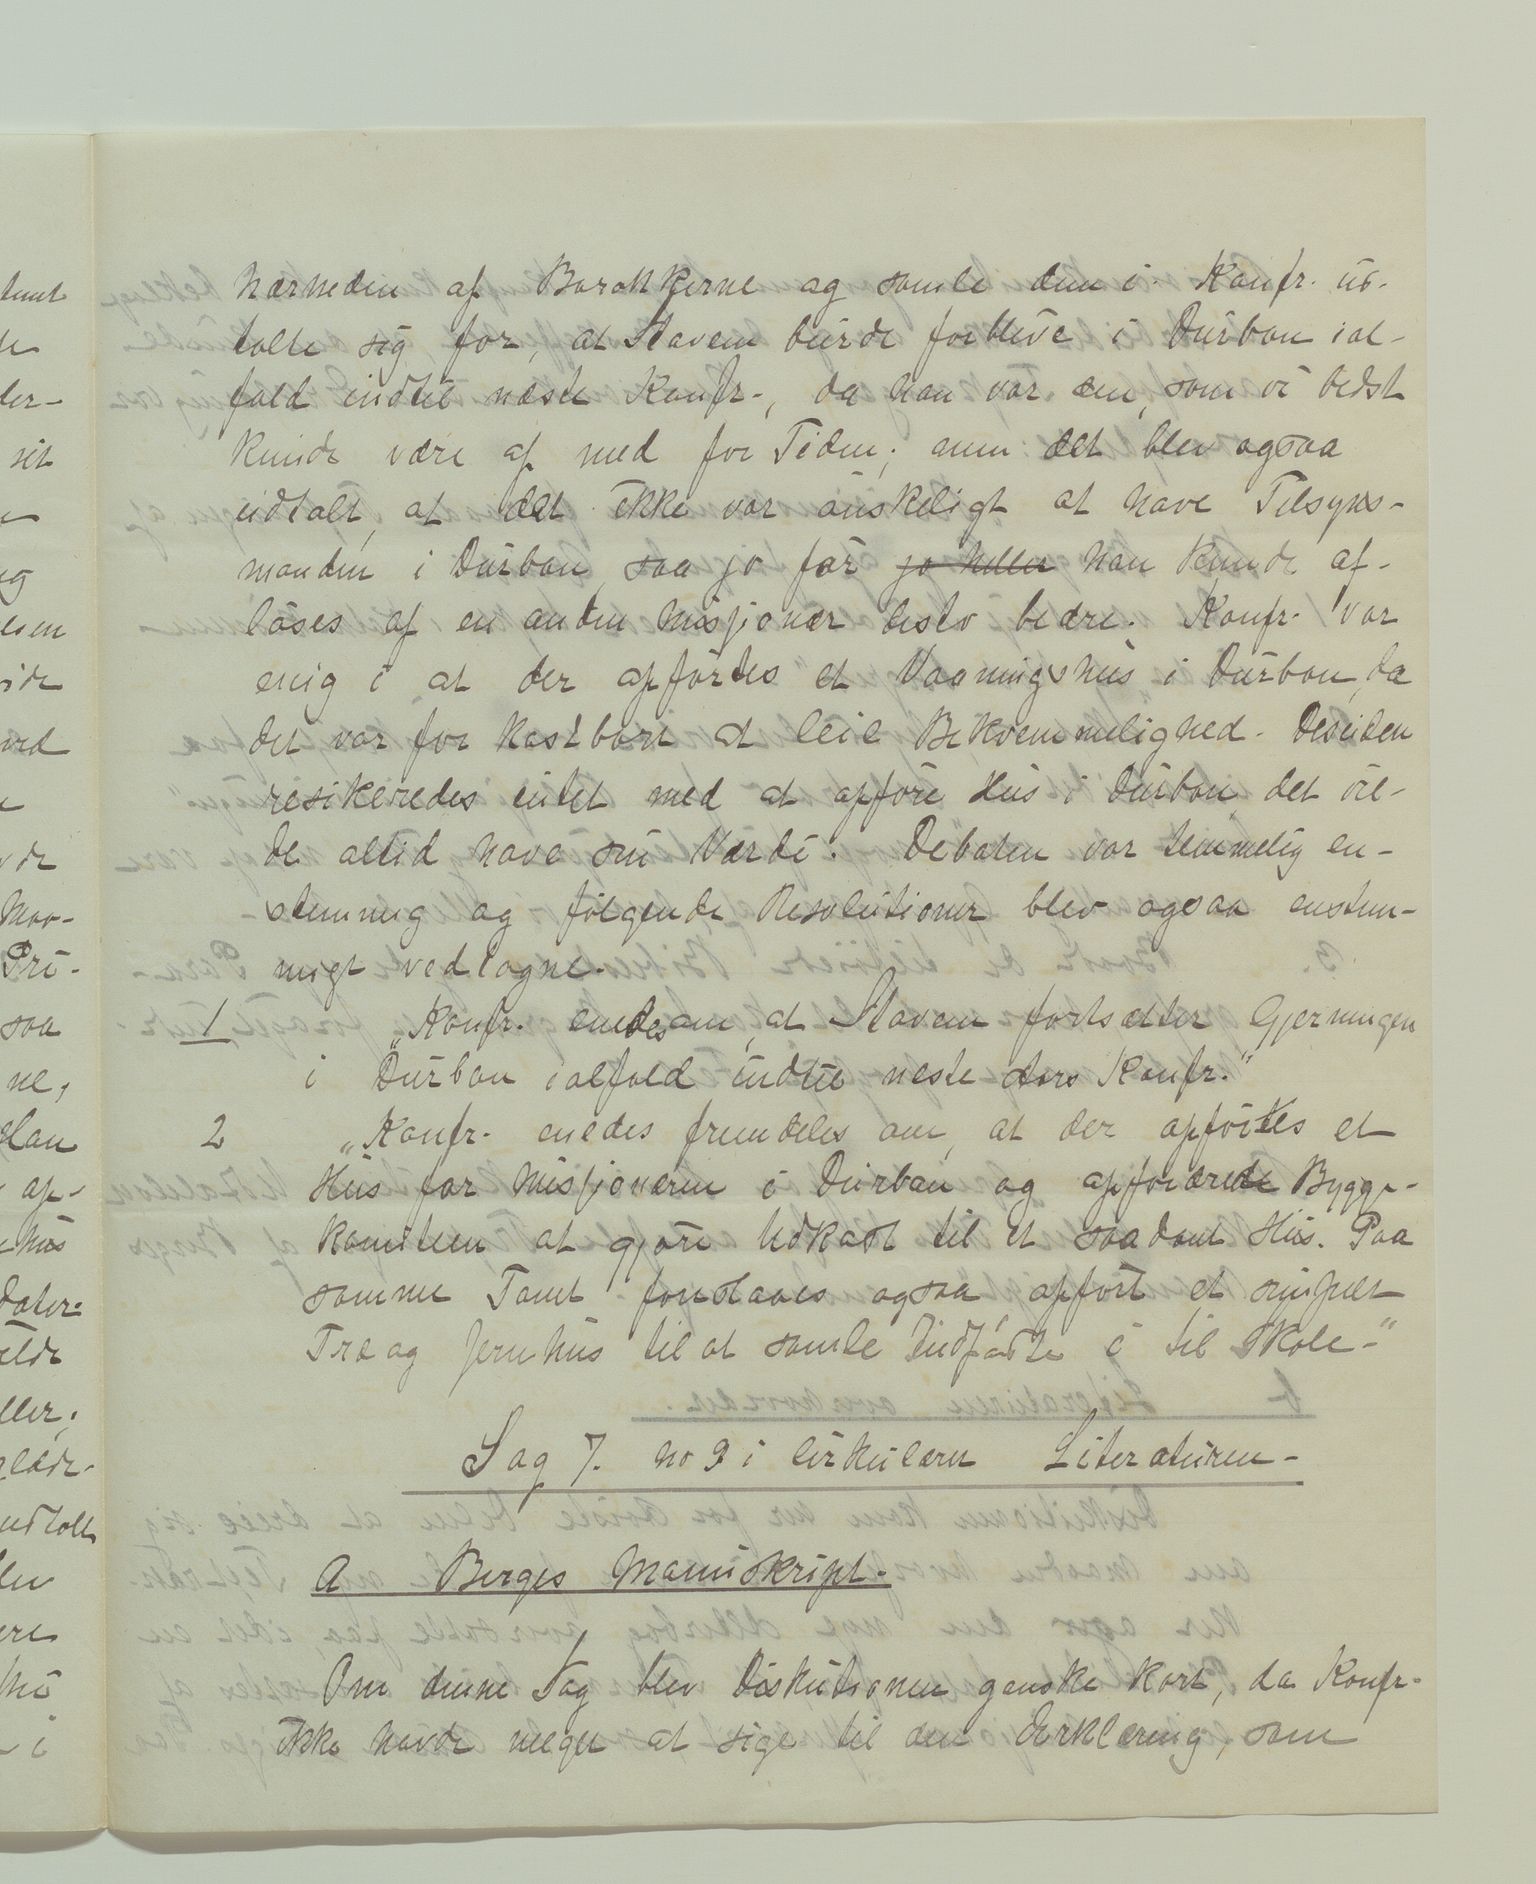 Nærheden af Barakkerne og samle dem i. Konfr. ud-
talte sig for, at Stavem burde forblive i Durban ial-
fald indtil næste Konfr., da han var den, som vi bedst
kunde være af med for Tiden; men det blev ogsaa
udtalt, at det ikke var ønskeligt at have Tilsyns-
manden i Durban, saa jo før jo heller han kunde af-
løses af en anden Missjonær desto bedre. Konfr. var
enig i at der opførtes et Vaaningshus i Durban, da
det var for kostbart at leie Bekvemmelighed. Desuden
resikeredes intet med at opføre Hus i Durban det vil-
de altid have sin Værdi. Debaten var temmelig en-
stemmig og følgende Resolutioner blev ogsaa enstem-
migt vedtagne.
1 "Konfr. enedes om, at Stavem fortsætter Gjerningen
i Durban ialfald indtil neste Aars Konfr."
2 "Konfr. enedes fremdeles om, at der opførtes et
Hus for Missjonæren i Durban og opfordrede Bygge-
komiteen at gjøre Udkast til et saadant Hus. Paa
samme Tomt foreslaaes ogsaa opført et simpelt
Træ og Jernhus til at samle Indfødte i til Skole."
Sag 7. No 9 i Cirkulæren Literaturen-
A Berges Manuskript.
Om denne Sag blev Diskutionen ganske kort, da Konfr.
ikke havde meget at sige til den Erklæring, som